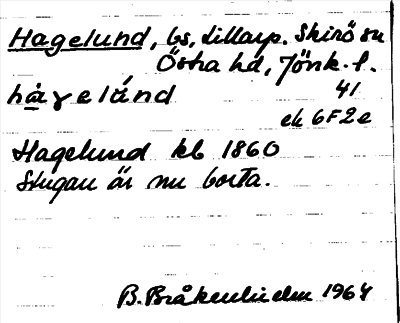 Hagelund, bs, Lillarp. Skirö sn
Östra hd, Jönk. l.
hàgelánd 41
ek 6F2e
Hagelund kb 1860
Stugan är nu borta.
B. Bråkenhielm 1964